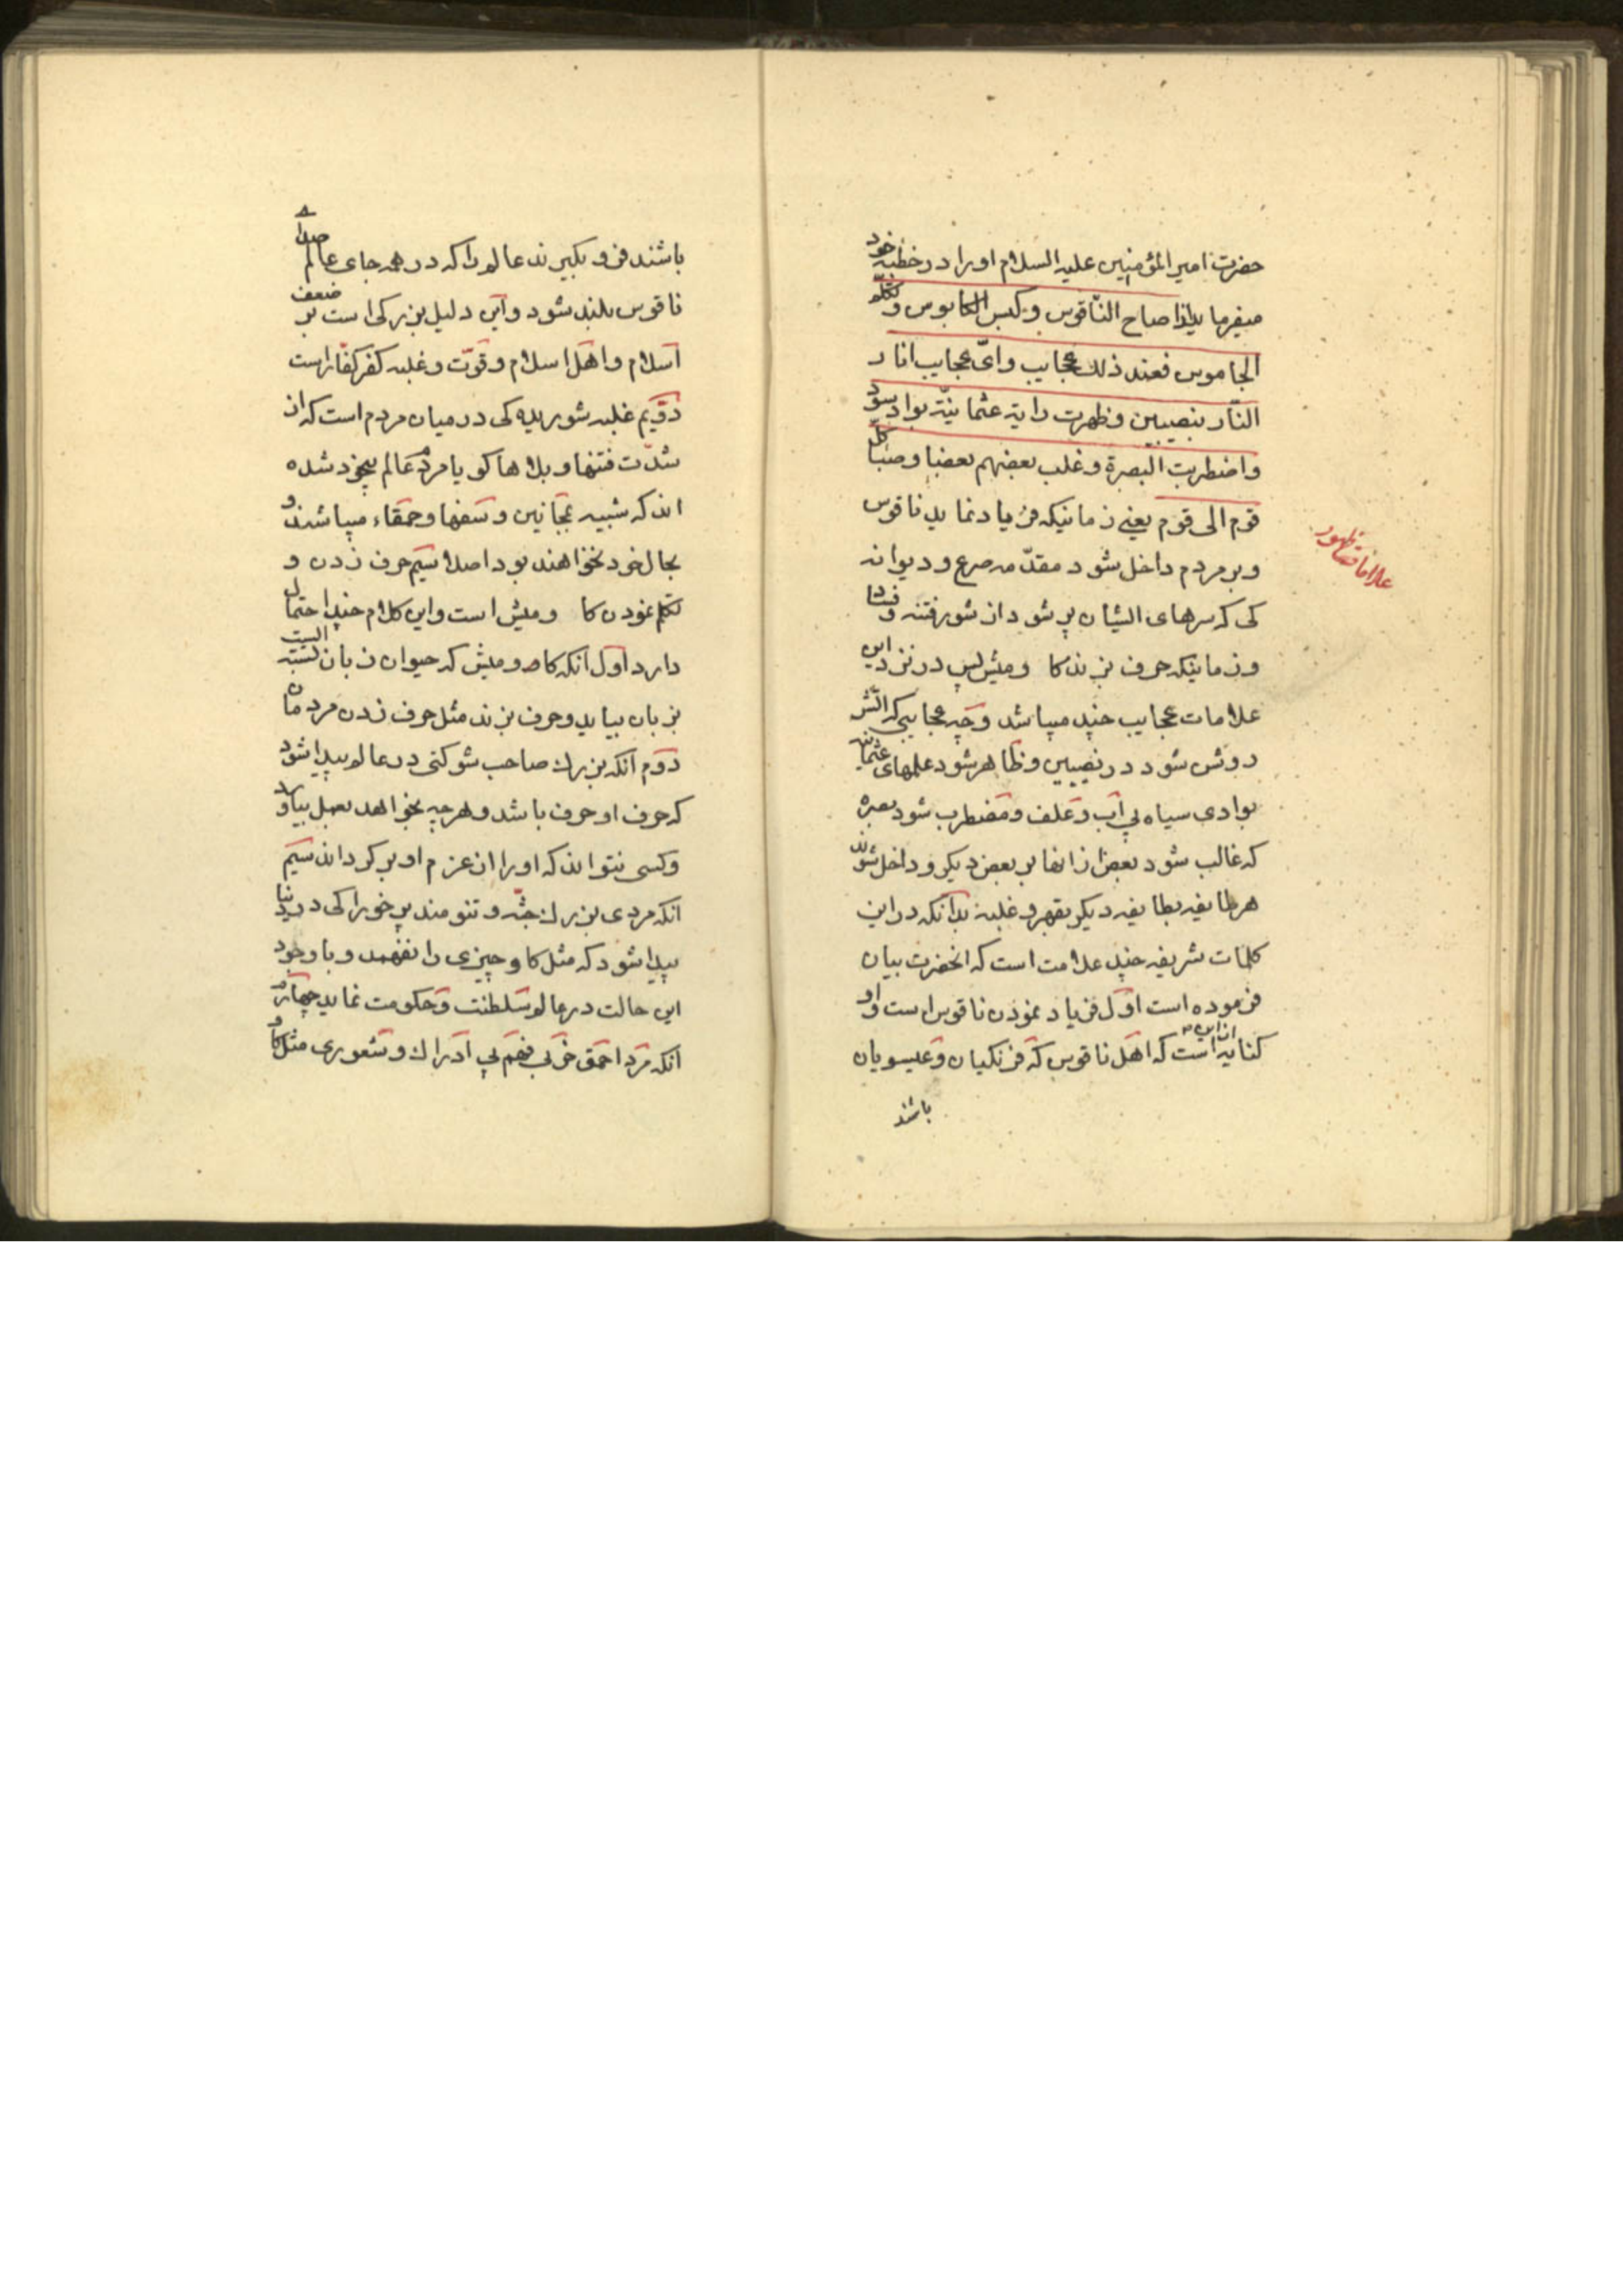 حضرت امیر المؤمنین علیه السلام او را در خطبه خود
میفرماید اذا صاح الناقوس و کبس الکابوس و تکلم
الجاموس فعند ذلک عجایب وای عجایب انار
النار بنصیبین و ظهرت رایة عثمانیة بواد سود
و اضطربت البصرة و غلب بعضهم بعضا و صبا کل
قوم الی قوم یعنی زمانیکه فریاد نماید ناقوس
و بر مردم داخل شود مقدمه صرع و دیوانه
کی که سرهای ایشان پر شود از شور فتنه و فساد
و زمانیکه حرف بزند کا ومیش پس در نزد این
علامات عجایب چند میباشد و چه عجایبی که اتش
روشن شود در نصیبین و ظاهر شود علمهای عثمانیه
بوادی سیاه بی آب و علف و مضطرب شود بصره
که غالب شود بعض از انها بر بعض دیگر و داخل شوند
هر طایفه بطایفه دیکر بقهر و غلبه بدانکه در این
کلمات شریفه چند علامت است که انحضرت بیان
فرموده است اول فریاد نمودن ناقوس است و او
کنایه از این است که اهل ناقوس که فرنکیان و عیسویان
باشند
علامات ظهور
باشند فرو بکیرند عالم را که در همه جای عالم صدای
ناقوس بلند شود و این دلیل بزرکی است بر ضعف
اسلام و اهل اسلام و قوت و غلبه کفر کفار است
دویم غلبه شوریده کی در میان مردم است که از
شدت فتنها و بلاها کویا مردم عالم بیخود شده
اند که شبیه بمجانین و سفها و حمقاء میباشند و
بحال خود نخواهند بود اصلا سیم حرف زدن و
تکلم نمودن کا ومیش است و این کلام چند احتمال
دارد اول انکه کاو ومیش که حیوان زبان بسته الیست
بزبان بیاید و حرف بزند مثل حرف زدن مردمان
دوم انکه بزرک صاحب شوکتی در عالم پیدا شود
که حرف او حرف باشد و هر چه بخواهد بعمل بیاورد
و کسی نتواند که او را از عزم او بر کرداند سیم
انکه مردی بزرک جثه و تنومند پر خوراکی در دنیا
پیدا شود که مثل کاو چیزی را نفهمد و با وجود
این حالت در عالم سلطنت و حکومت نماید چهارم
انکه مرد احمق خر بی فهم بی ادراک و شعوری مثل کاو